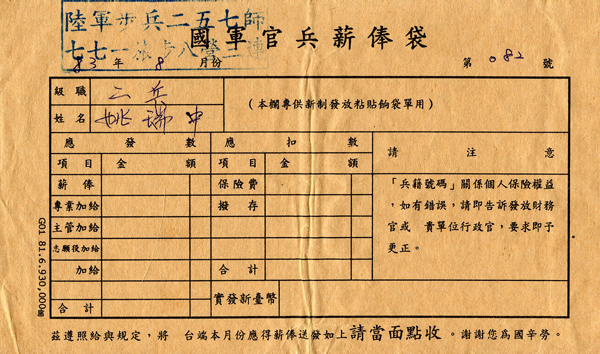 陸軍步兵二五七師
七七一旅步八營三連
國軍官兵薪俸袋
83年8月份 第082號
級職 二兵
姓名 姚瑞中
(本欄專供新制發放粘貼餉袋單用)
應發數 應扣數 請注意
項目 金額 項目 金額
薪俸 保險費
專業加給 撥存
主管加給
志願役加給
加給 合計
合計 實發新臺幣
「兵籍號碼」關係個人保險權益
,如有錯誤,請即告訴發放財務
官或 貴單位行政官,要求即予
更正。
茲遵照給與規定,將 台端本月份應得薪俸送發如上請當面點收。謝謝您為國辛勞。
G01 81.6.930,000